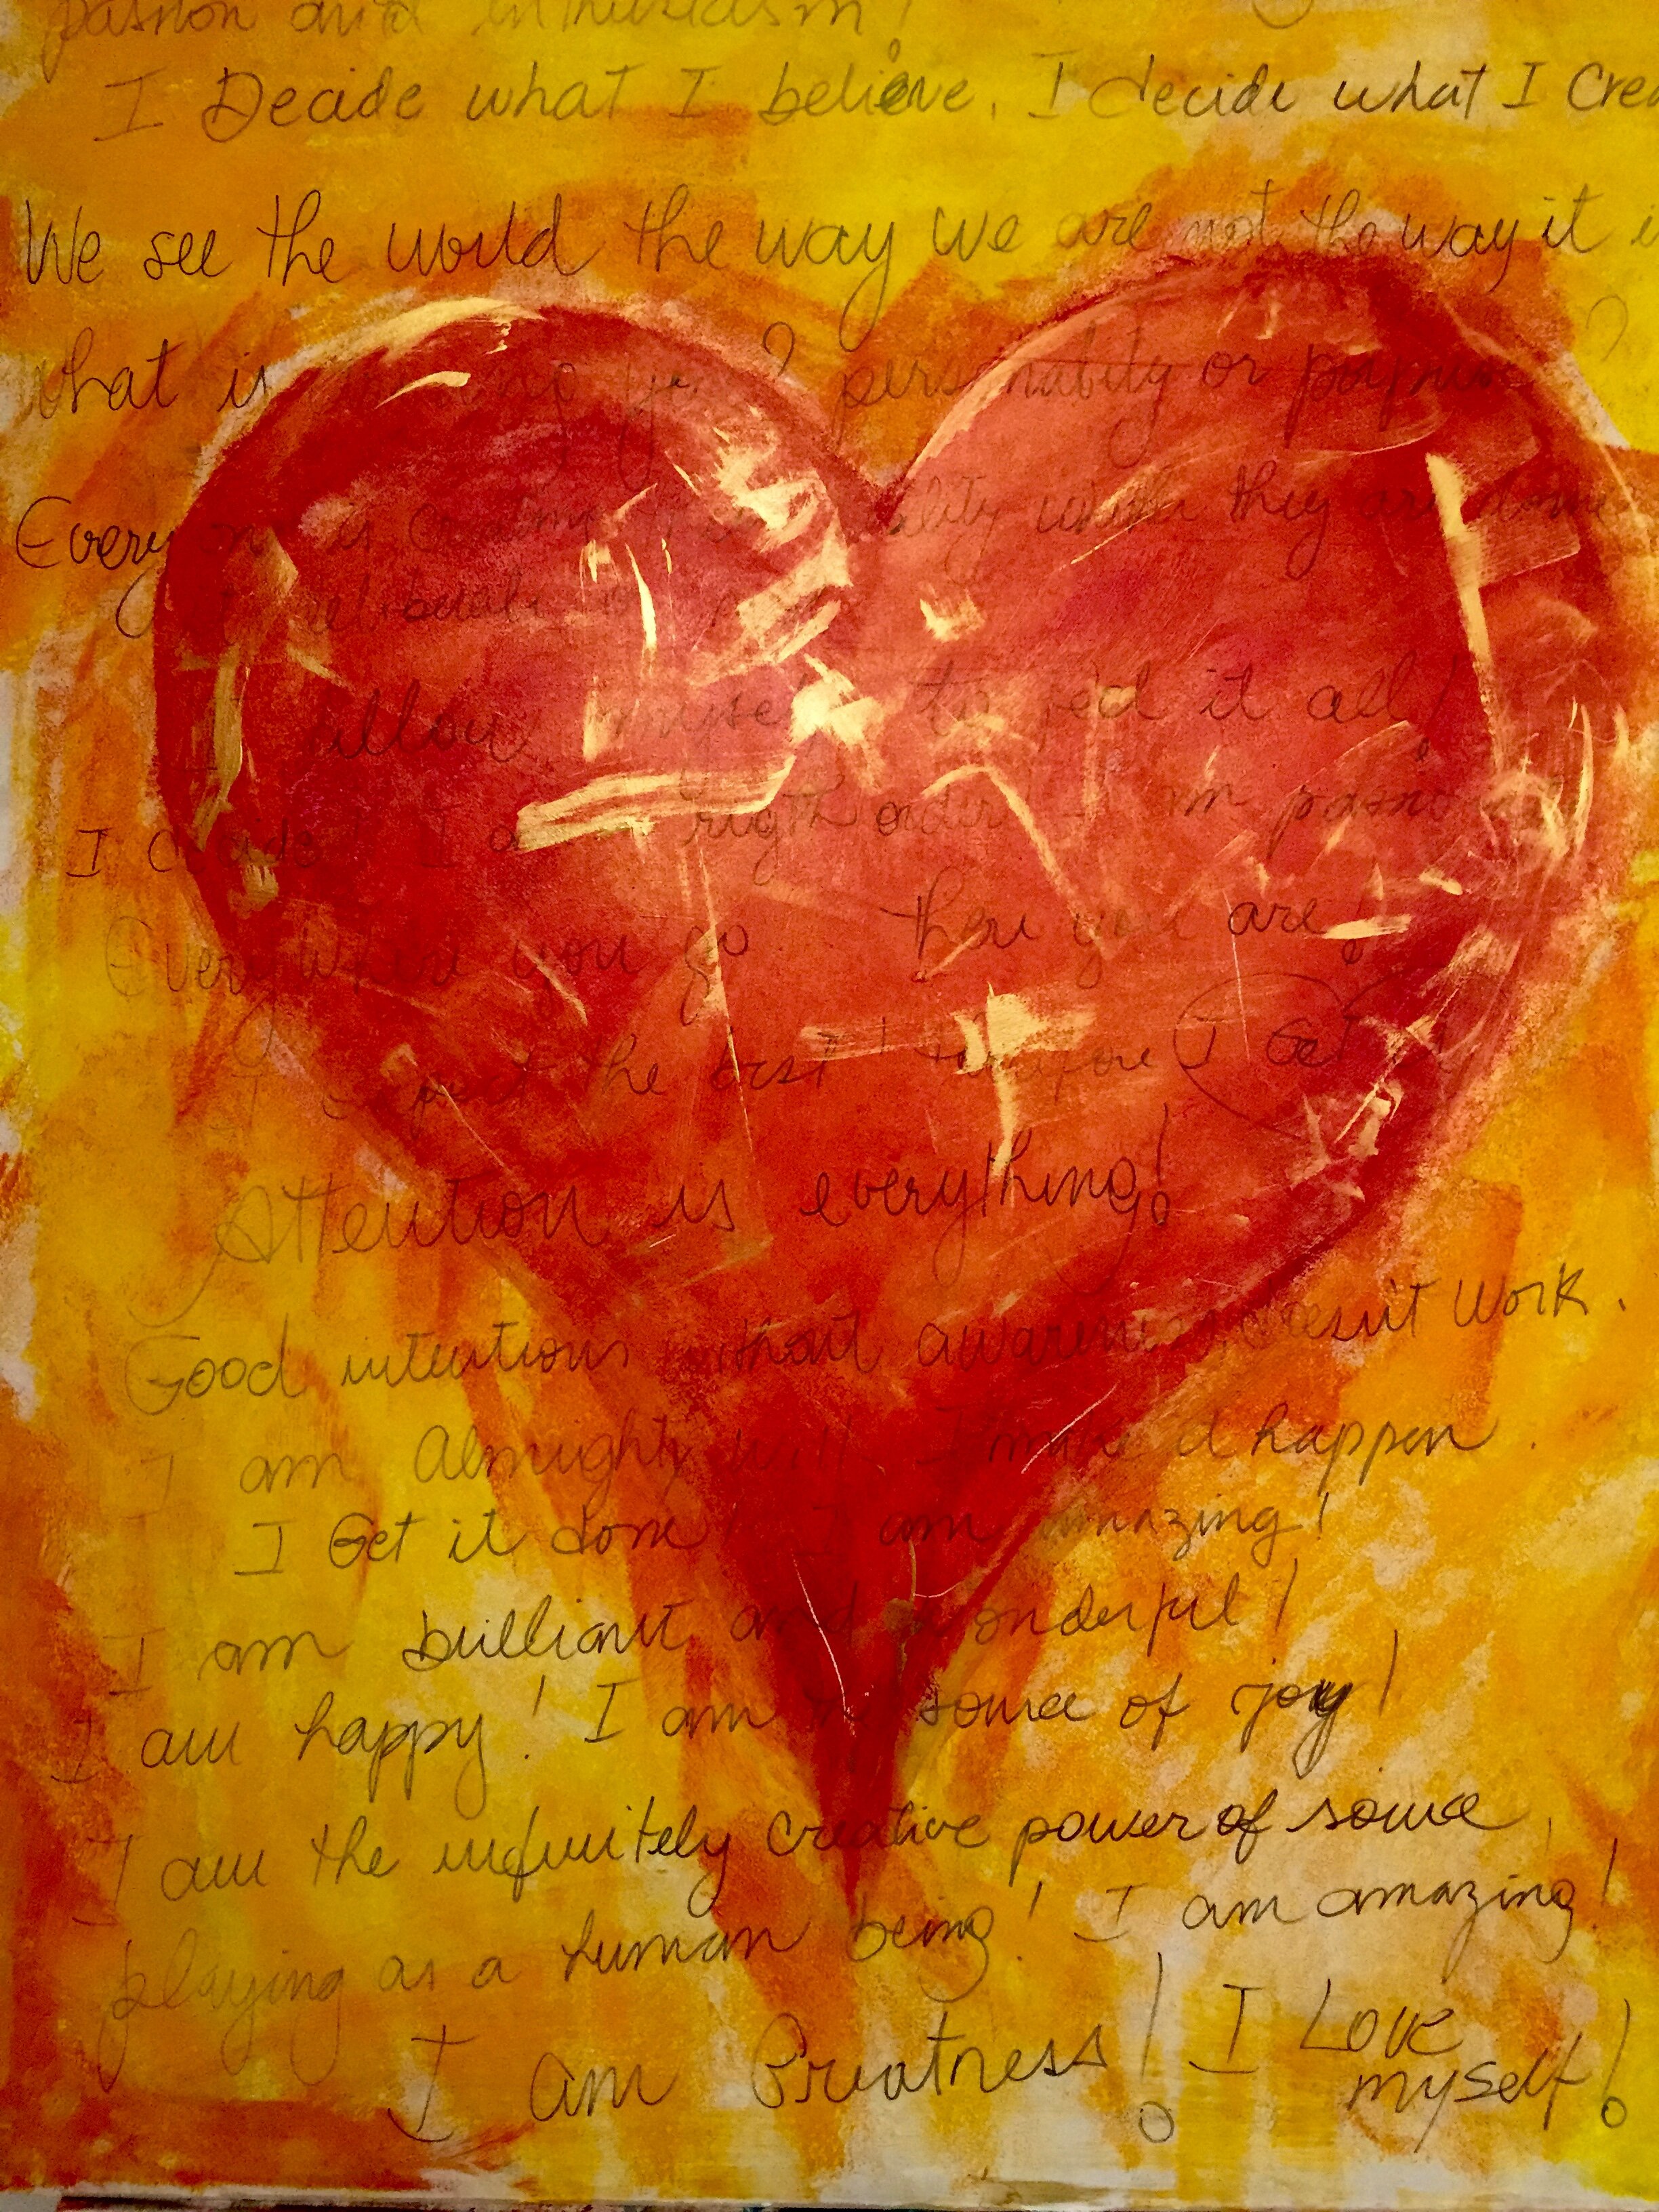 passion and enthusiasm!
I Decide what I believe, I decide what I Crea
We see the world the way we are not the way it i
what is you? personality or purpose?
Every one is creating reality they are
deliberate or
I allow myself to feel it all!
I I a in rigth order! I am
Everywhere you go there you are!
I the best! therefore I Get it
Attention is everything!
Good intentions without awareness doesn't work.
I am Almighty will. I make it happen.
I Get it done! I am amazing!
I am brilliant and wonderful!
I am happy! I am source of joy!
I am the infinitely creative power of source,
playing as a human being! I am amazing!
I am Greatness! I Love
myself!